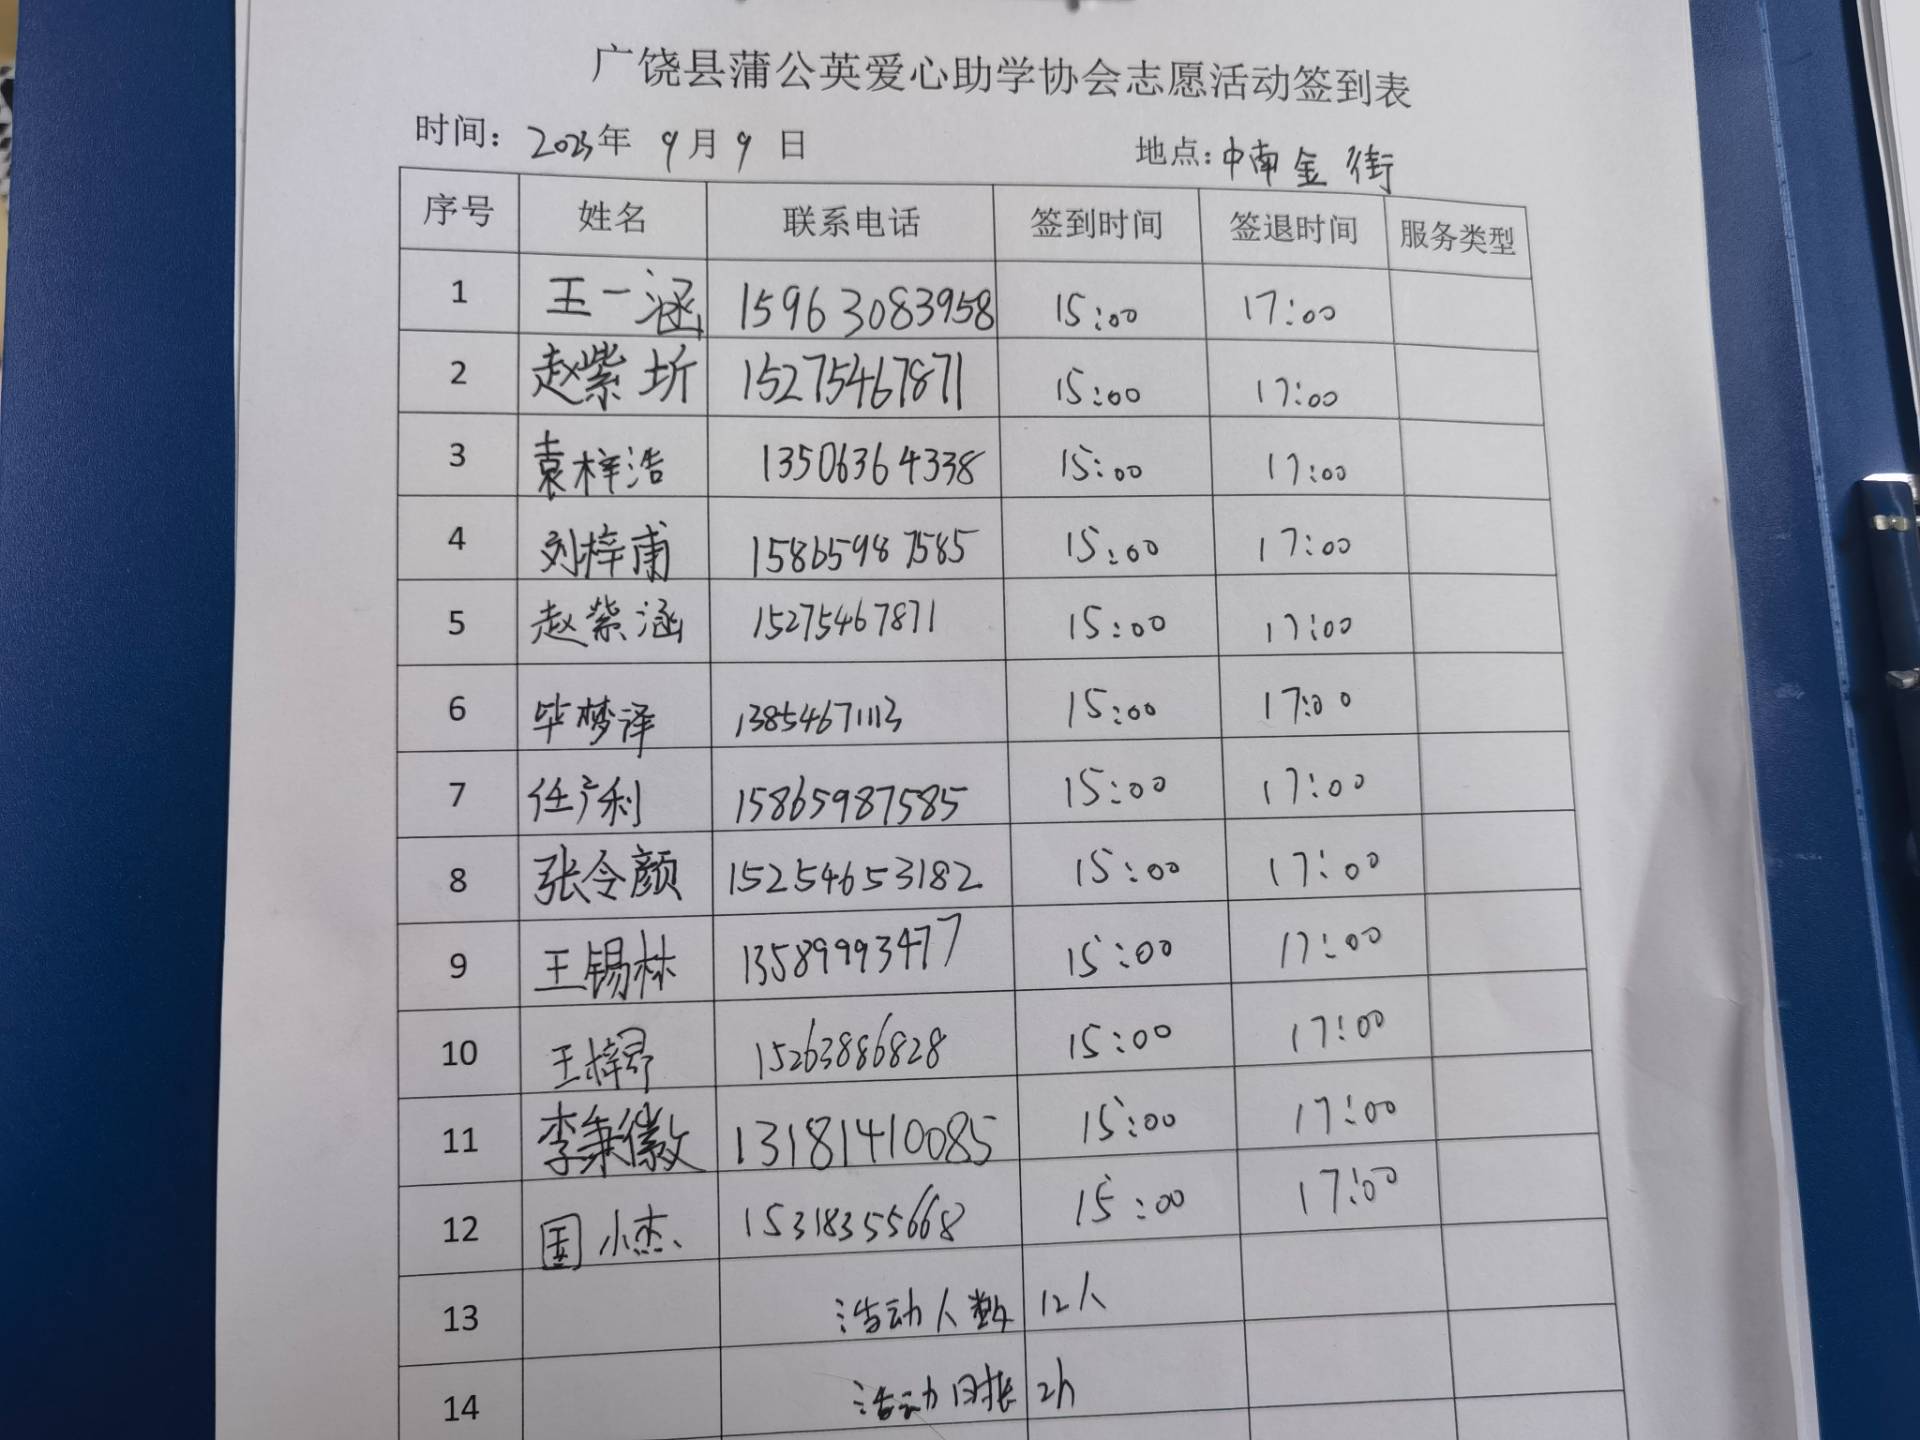 广饶县蒲公英爱心助学协会志愿活动签到表
时间: 2023年 9月9日 地点: 中南金街
序号 姓名 联系电话 签到时间 签退时间 服务类型
1 王一涵 15963083958 15:00 17:00
2 赵紫圻 15275467871 15:00 17:00
3 袁梓浩 13506364338 15:00 17:00
4 刘梓甫 15865987585 15:00 17:00
5 赵紫涵 15275467871 15:00 17:00
6 毕梦泽 13854671113 15:00 17:00
7 任广利 15865987585 15:00 17:00
8 张令颜 15254653182 15:00 17:00
9 王锡林 13589993477 15:00 17:00
10 15263886828 15:00 17:00
11 李秉徽 13181410085 15:00 17:00
12 国小杰 15318355668 15:00 17:00
13 活动人数 12人
14 活动时长 2h